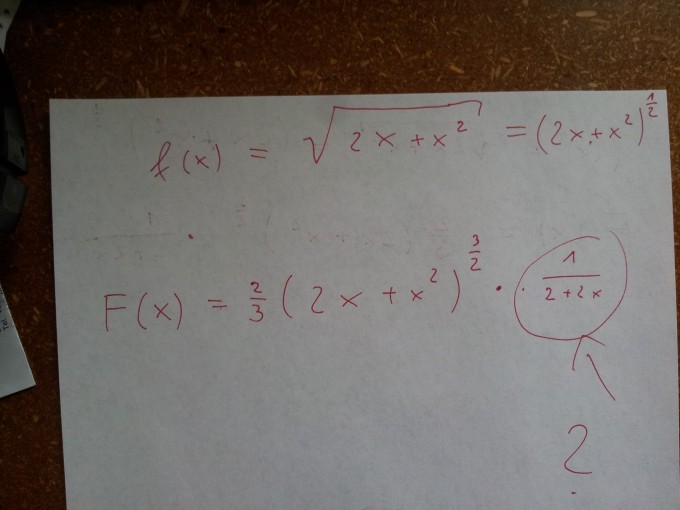 f(x) = √(2x+x²) = (2x+x²)^(1/2)
F(x) = 2/3 (2x+x²)^(3/2) · 1/(2+2x)
?